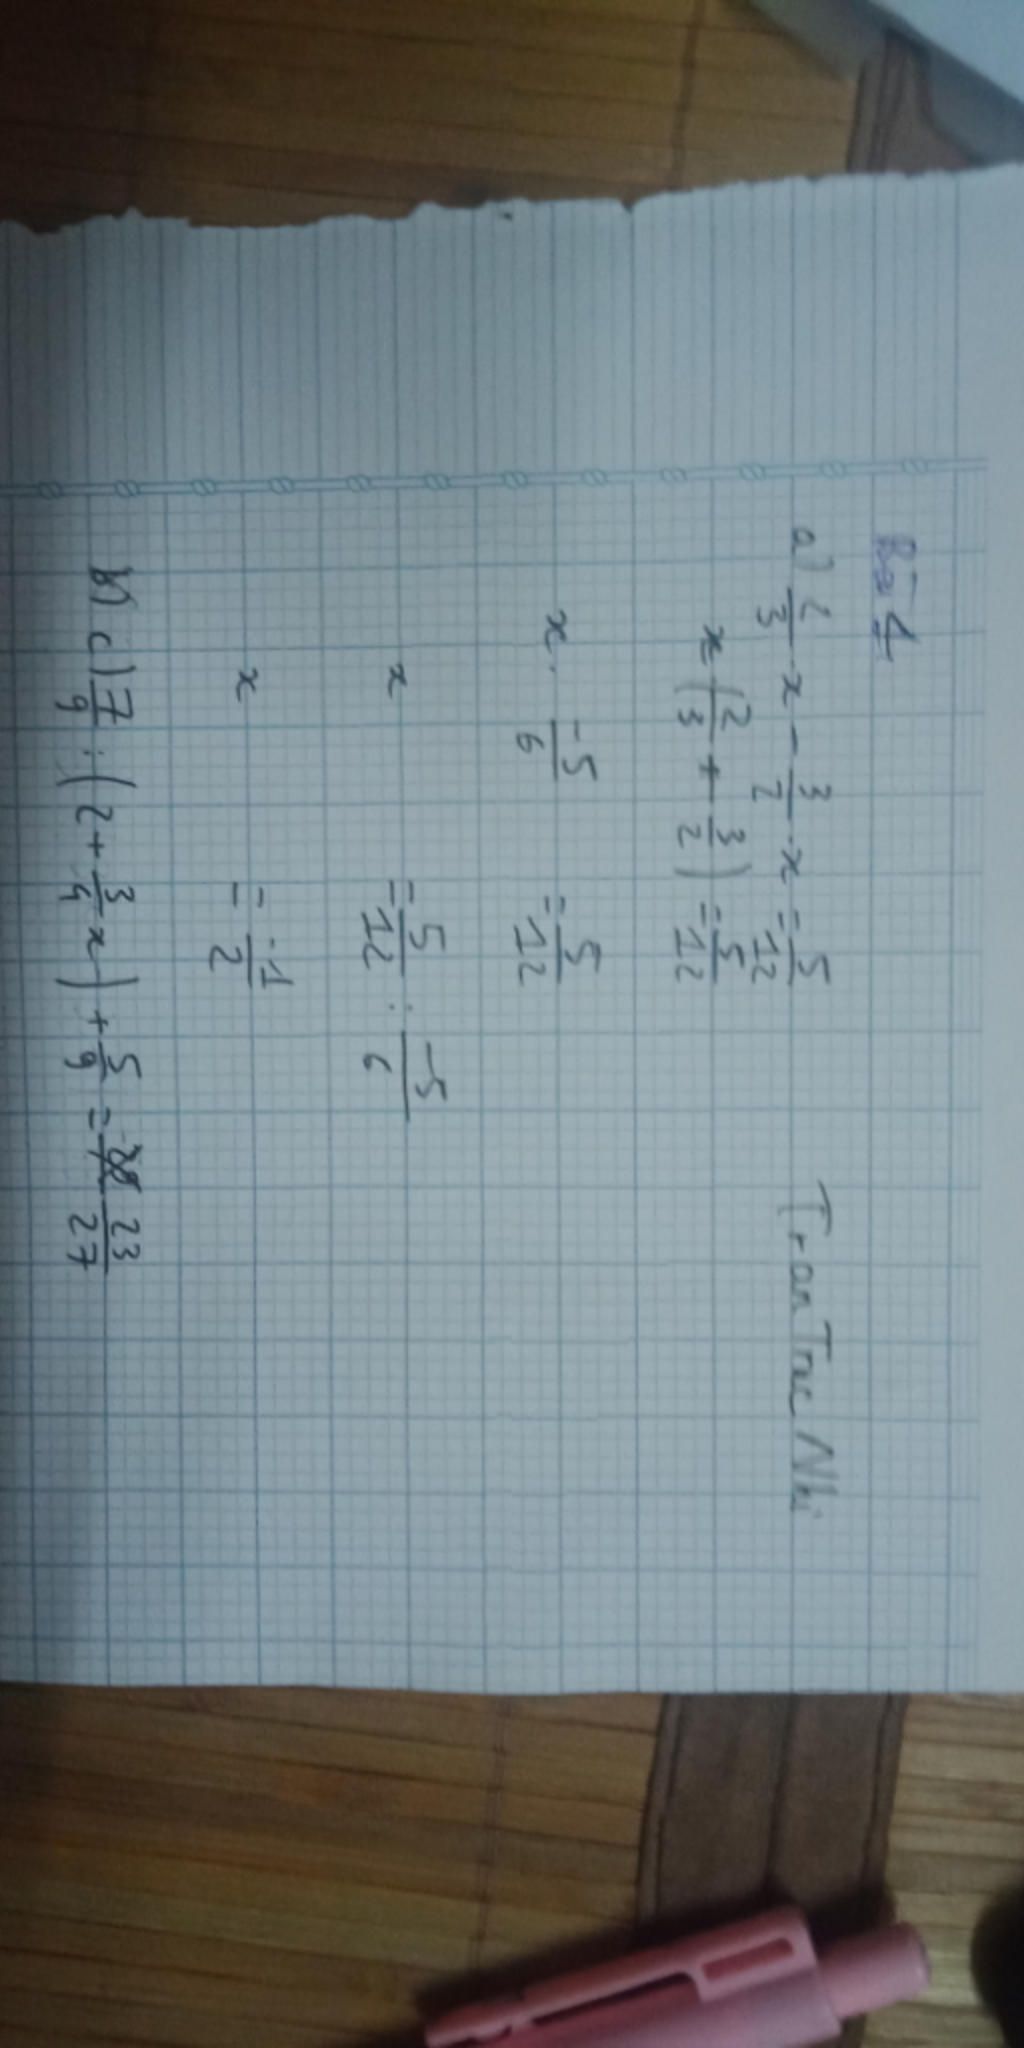 Bài 4
Tran Truc Nhi
a) 2/3 x - 3/2 . x = 5/12
x (2/3 + 3/2) = 5/12
x . -5/6 = 5/12
x = 5/12 : -5/6
x = -1/2
b) c) 7/9 : (2 + 3/4 x) + 5/9 = 23/27